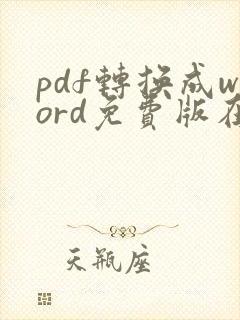 pdf轉換成w
ord免費版在
天瓶座